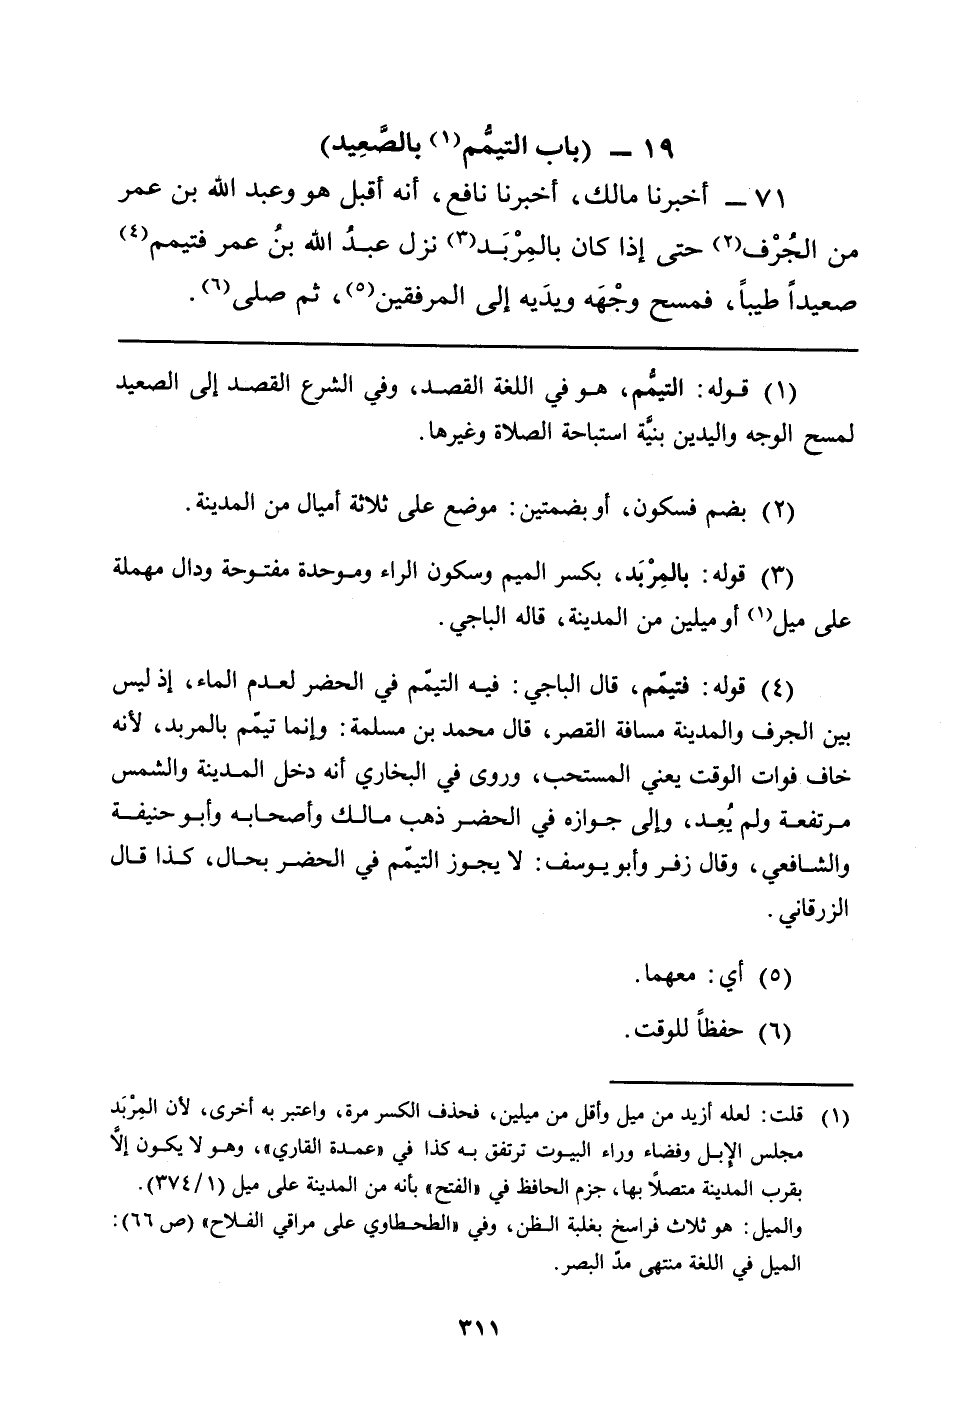 ١٩ ــ (باب التيمُّم(١) بالصَّعِيد)
٧١ ــ أخبرنا مالك، أخبرنا نافع، أنه أقبل هو وعبد الله بن عمر
من الجُرْف(٢) حتى إذا كان بالمِرْبَد(٣) نزل عبدُ الله بنُ عمر فتيمم(٤)
صعيداً طيباً، فمسح وجْهَه ويدَيه إلى المرفقين(٥)، ثم صلى(٦).
(١) قوله: التيمُّم، هو في اللغة القصد، وفي الشرع القصد إلى الصعيد
لمسح الوجه واليدين بنيَّة استباحة الصلاة وغيرها.
(٢) بضم فسكون، أو بضمتين: موضع على ثلاثة أميال من المدينة.
(٣) قوله: بالمِرْبَد، بكسر الميم وسكون الراء وموحدة مفتوحة ودال مهملة
على ميل(١) أو ميلين من المدينة، قاله الباجي.
(٤) قوله: فتيمّم، قال الباجي: فيه التيمّم في الحضر لعدم الماء، إذ ليس
بين الجرف والمدينة مسافة القصر، قال محمد بن مسلمة: وإنما تيمّم بالمربد، لأنه
خاف فوات الوقت يعني المستحب، وروى في البخاري أنه دخل المدينة والشمس
مرتفعة ولم يُعِد، وإلى جوازه في الحضر ذهب مالك وأصحابه وأبو حنيفة
والشافعي، وقال زفر وأبو يوسف: لا يجوز التيمّم في الحضر بحال، كذا قال
الزرقاني.
(٥) أي: معهما.
(٦) حفظاً للوقت.
(١) قلت: لعله أزيد من ميل وأقل من ميلين، فحذف الكسر مرة، واعتبر به أخرى، لأن المِرْبَد
مجلس الإبل وفضاء وراء البيوت ترتفق به كذا في «عمدة القاري»، وهو لا يكون إلَّا
بقرب المدينة متصلًا بها، جزم الحافظ في «الفتح» بأنه من المدينة على ميل (٣٧٤/١).
والميل: هو ثلاث فراسخ بغلبة الظن، وفي «الطحطاوي على مراقي الفلاح» (ص ٦٦):
الميل في اللغة منتهى مدّ البصر.
٣١١